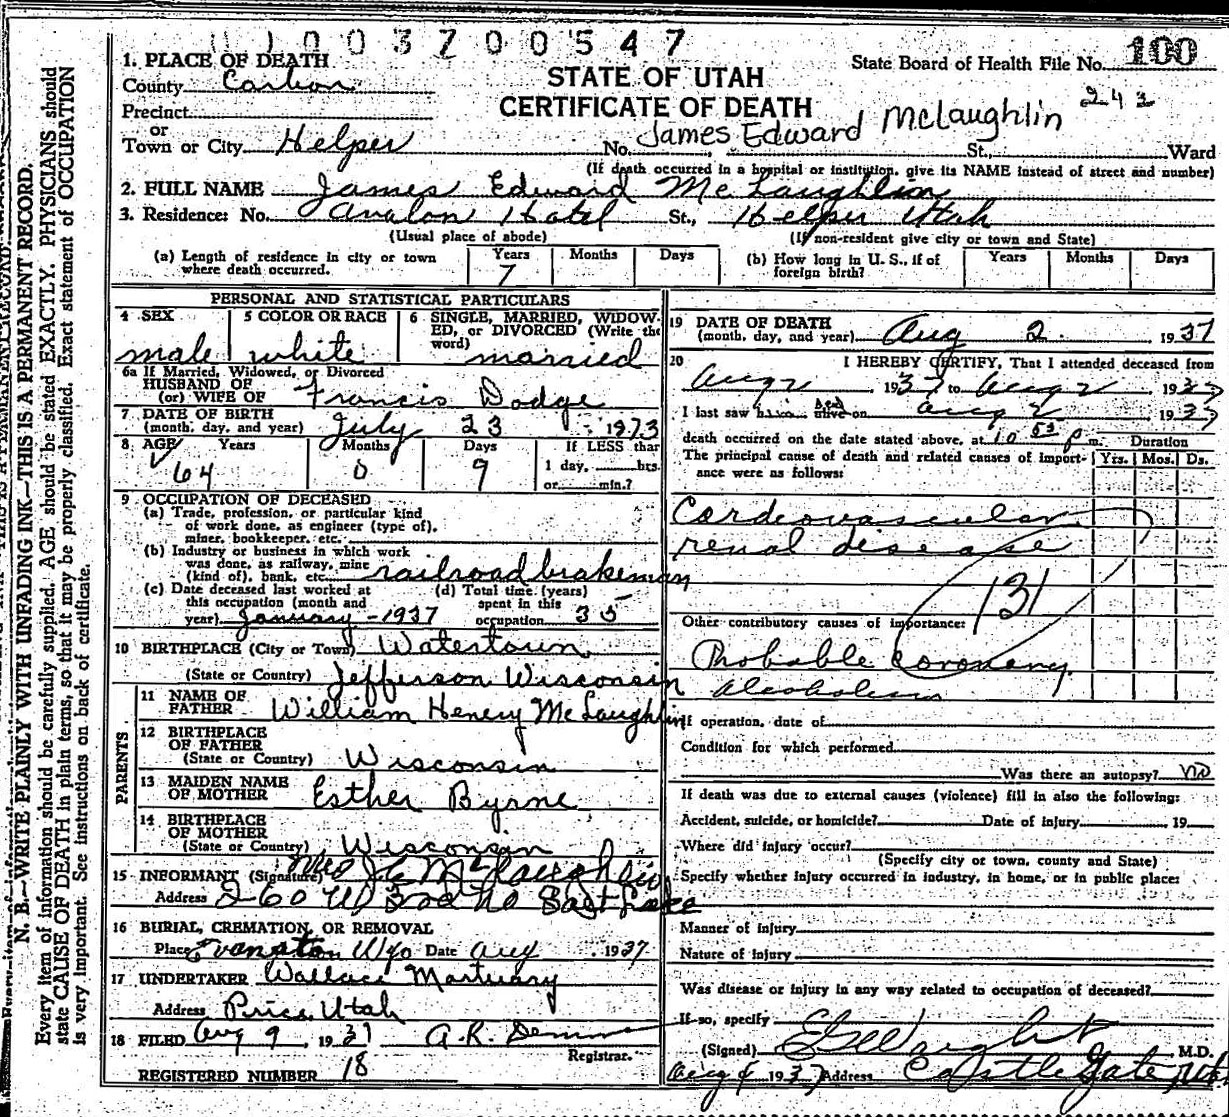 003700547
1. PLACE OF DEATH
County Carbon
Precinct
or
Town or City Helper
STATE OF UTAH
CERTIFICATE OF DEATH
State Board of Health File No. 100
242
James Edward McLaughlin
No. St., Ward
(If death occurred in a hospital or institution, give its NAME instead of street and number)
2. FULL NAME James Edward McLaughlin
3. Residence: No. Avalon Hotel St., Helper Utah
(Usual place of abode) (If non-resident give city or town and State)
(a) Length of residence in city or town where death occurred. Years 7 Months Days
(b) How long in U. S., if of foreign birth? Years Months Days
PERSONAL AND STATISTICAL PARTICULARS
4 SEX male
5 COLOR OR RACE white
6 SINGLE, MARRIED, WIDOWED, or DIVORCED (Write the word) married
6a If Married, Widowed, or Divorced
HUSBAND OF
(or) WIFE OF Francis Dodge
7 DATE OF BIRTH
(month, day, and year) July 23 1873
8 AGE Years 64 Months 0 Days 9 If LESS than 1 day, hrs. or min.?
9 OCCUPATION OF DECEASED
(a) Trade, profession, or particular kind
of work done, as engineer (type of),
miner, bookkeeper, etc.
(b) Industry or business in which work
was done, as railway, mine
(kind of), bank, etc. railroad brakeman
(c) Date deceased last worked at this occupation (month and year) January - 1937
(d) Total time (years) spent in this occupation 35
10 BIRTHPLACE (City or Town) Watertown
(State or Country) Jefferson Wisconsin
PARENTS
11 NAME OF FATHER William Henery McLaughlin
12 BIRTHPLACE OF FATHER
(State or Country) Wisconsin
13 MAIDEN NAME OF MOTHER Esther Byrne
14 BIRTHPLACE OF MOTHER
(State or Country) Wisconsin
15 INFORMANT (Signature) Mrs J E McLaughlin
Address 260 W
16 BURIAL, CREMATION, OR REMOVAL
Place Evanston Wyo Date Aug 1937
17 UNDERTAKER Wallace Mortuary
Address Price, Utah
18 FILED Aug 9, 1937 A. R.
Registrar.
REGISTERED NUMBER 18
19 DATE OF DEATH
(month, day, and year) Aug 2. 1937
20 I HEREBY CERTIFY, That I attended deceased from
Aug 2 1937 to Aug 2 1937
I last saw him alive on Aug 2 1937
death occurred on the date stated above, at 10 53 p m. Duration
The principal cause of death and related causes of importance were as follows: Yrs. Mos. Ds.
Cardeovascular
renal disease
131
Other contributory causes of importance:
Probable coronary
Alcoholism
If operation, date of
Condition for which performed
Was there an autopsy? no
If death was due to external causes (violence) fill in also the following:
Accident, suicide, or homicide? Date of injury 19
Where did injury occur?
(Specify city or town, county and State)
Specify whether injury occurred in industry, in home, or in public place:
Manner of injury
Nature of injury
Was disease or injury in any way related to occupation of deceased?
If so, specify
(Signed) M.D.
Aug 4 1937 Address Castle Gate, Utah
N. B.—WRITE PLAINLY WITH UNFADING INK—THIS IS A PERMANENT RECORD.
Every item of information should be carefully supplied. AGE should be stated EXACTLY. PHYSICIANS should
state CAUSE OF DEATH in plain terms, so that it may be properly classified. Exact statement of OCCUPATION
is very important. See instructions on back of certificate.